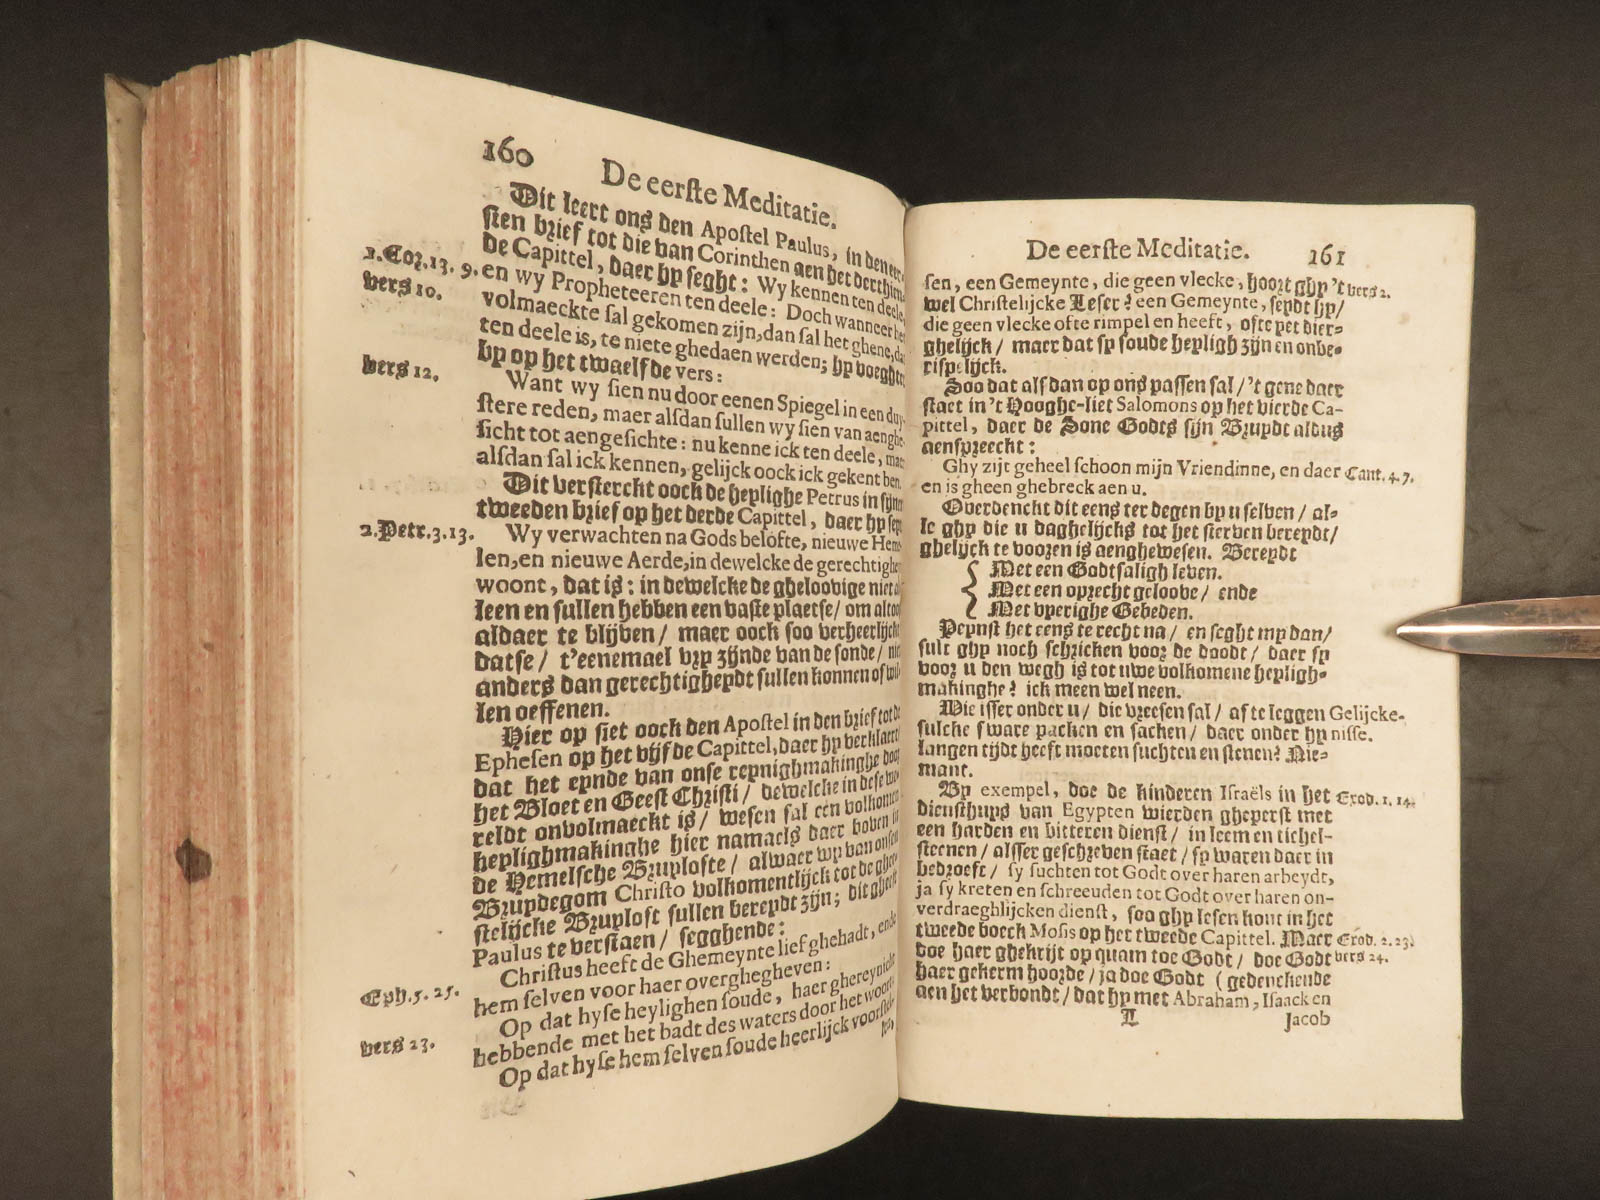 160 De eerste Meditatie.
Dit leert ons den Apostel Paulus, in den eer-
sten brief tot die van Corinthen aen het derthien-
de Capittel, daer hy seght: Wy kennen ten deele,
1. Cor. 13. 9. en wy Propheteeren ten deele: Doch wanneer het
vers 10. volmaeckte sal gekomen zijn, dan sal het ghene, dat
ten deele is, te niete ghedaen werden; hy voeghter
by op het twaelfde vers:
vers 12. Want wy sien nu door eenen Spiegel in een duy-
stere reden, maer alsdan sullen wy sien van aenghe-
sicht tot aengesichte: nu kenne ick ten deele, maer
alsdan sal ick kennen, gelijck oock ick gekent ben.
Dit versterckt oock de heylighe Petrus in sijnen
tweeden brief op het derde Capittel, daer hy seyt
2. Petr. 3. 13. Wy verwachten na Gods belofte, nieuwe Heme-
len, en nieuwe Aerde, in dewelcke de gerechtigheyt
woont, dat is: in dewelcke de gheloovige niet al-
leen en sullen hebben een vaste plaetse / om altoos
aldaer te blijven / maer oock soo verheerlijckt
datse / t'eenemael vry zijnde van de sonde / niet
anders dan gerechtigheydt sullen konnen of wil-
len oeffenen.
Hier op siet oock den Apostel in den brief tot de
Ephesen op het vijfde Capittel, daer hy verklaert
dat het eynde van onse reynighmakinghe door
het Bloet en Geest Christi / dewelcke in dese we-
reldt onvolmaeckt is / wesen sal een volkomen
heylighmakinghe hier namaels daer boven in
de Hemelsche Bruylofte / alwaer wy van onsen
Bruydegom Christo volkomentlijck tot de ghee-
stelijcke Bruyloft sullen bereydt zijn; dit gheeft
Paulus te verstaen / segghende:
Eph. 5. 25. Christus heeft de Ghemeynte lief ghehadt, ende
hem selven voor haer overghegheven:
Op dat hyse heylighen soude, haer ghereynicht
vers 23. hebbende met het badt des waters door het woort.
Op dat hyse hem selven soude heerlijck voorstel-
len,
De eerste Meditatie. 161
sen, een Gemeynte, die geen vlecke, hoort ghy 't vers 2.
wel Christelijcke Leser? een Gemeynte, seydt hy /
die geen vlecke ofte rimpel en heeft, ofte yet dier-
ghelijck / maer dat sy soude heyligh zijn en onbe-
rispelijck.
Soo dat alsdan op ons passen sal / 't gene daer
staet in 't Hooghe-liet Salomons op het vierde Ca-
pittel, daer de Sone Godts sijn Bruydt aldus
aenspreeckt:
Ghy zijt geheel schoon mijn Vriendinne, en daer Cant. 4. 7.
en is gheen ghebreck aen u.
Overdenckt dit eens ter degen by u selven / al-
le ghy die u daghelijcks tot het sterven bereydt /
ghelijck te vooren is aenghewesen. Bereydt
Met een Godtsaligh leven.
Met een oprecht geloove / ende
Met vyerighe Gebeden.
Peynst het eens te recht na / en seght my dan /
sult ghy noch schricken voor de doodt / daer sy
voor u den wegh is tot uwe volkomene heyligh-
makinghe? ick meen wel neen.
Wie isser onder u / die vreesen sal / af te leggen Gelijcke-
sulcke sware packen en sacken / daer onder hy nisse.
langen tijdt heeft moeten suchten en stenen? Nie-
mant.
By exempel, doe de kinderen Israëls in het Exod. 1. 14.
diensthuys van Egypten wierden gheperst met
een harden en bitteren dienst / in leem en tichel-
steenen / alsser geschreven staet / sy waren daer in
bedroeft / sy suchten tot Godt over haren arbeydt,
ja sy kreten en schreeuden tot Godt over haren on-
verdraeghlijcken dienst, soo ghy lesen kont in het
tweede boeck Mosis op het tweede Capittel. Maer Exod. 2. 23.
doe haer ghekrijt op quam toe Godt / doe Godt vers 24.
haer gekerm hoorde / ja doe Godt (gedenckende
aen het verbondt / dat hy met Abraham, Isaack en
L Jacob